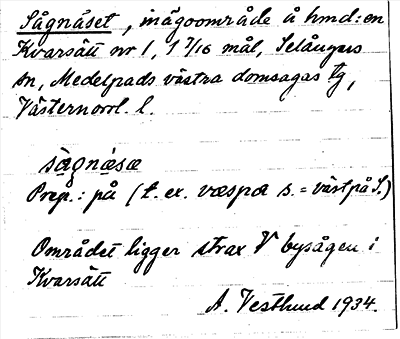 Sågnäset, inägoområde å hmd:en
Kvarsätt nr 1, 1 7/16 mål, Selångers
sn, Medelpads västra domsagas tg,
Västernorrl. l.
sågnæsæ
Prep.: på (t. ex. væspɑ s. = väst på S.)
Området ligger strax V bysågen i
Kvarsätt
A. Vestlund 1934.